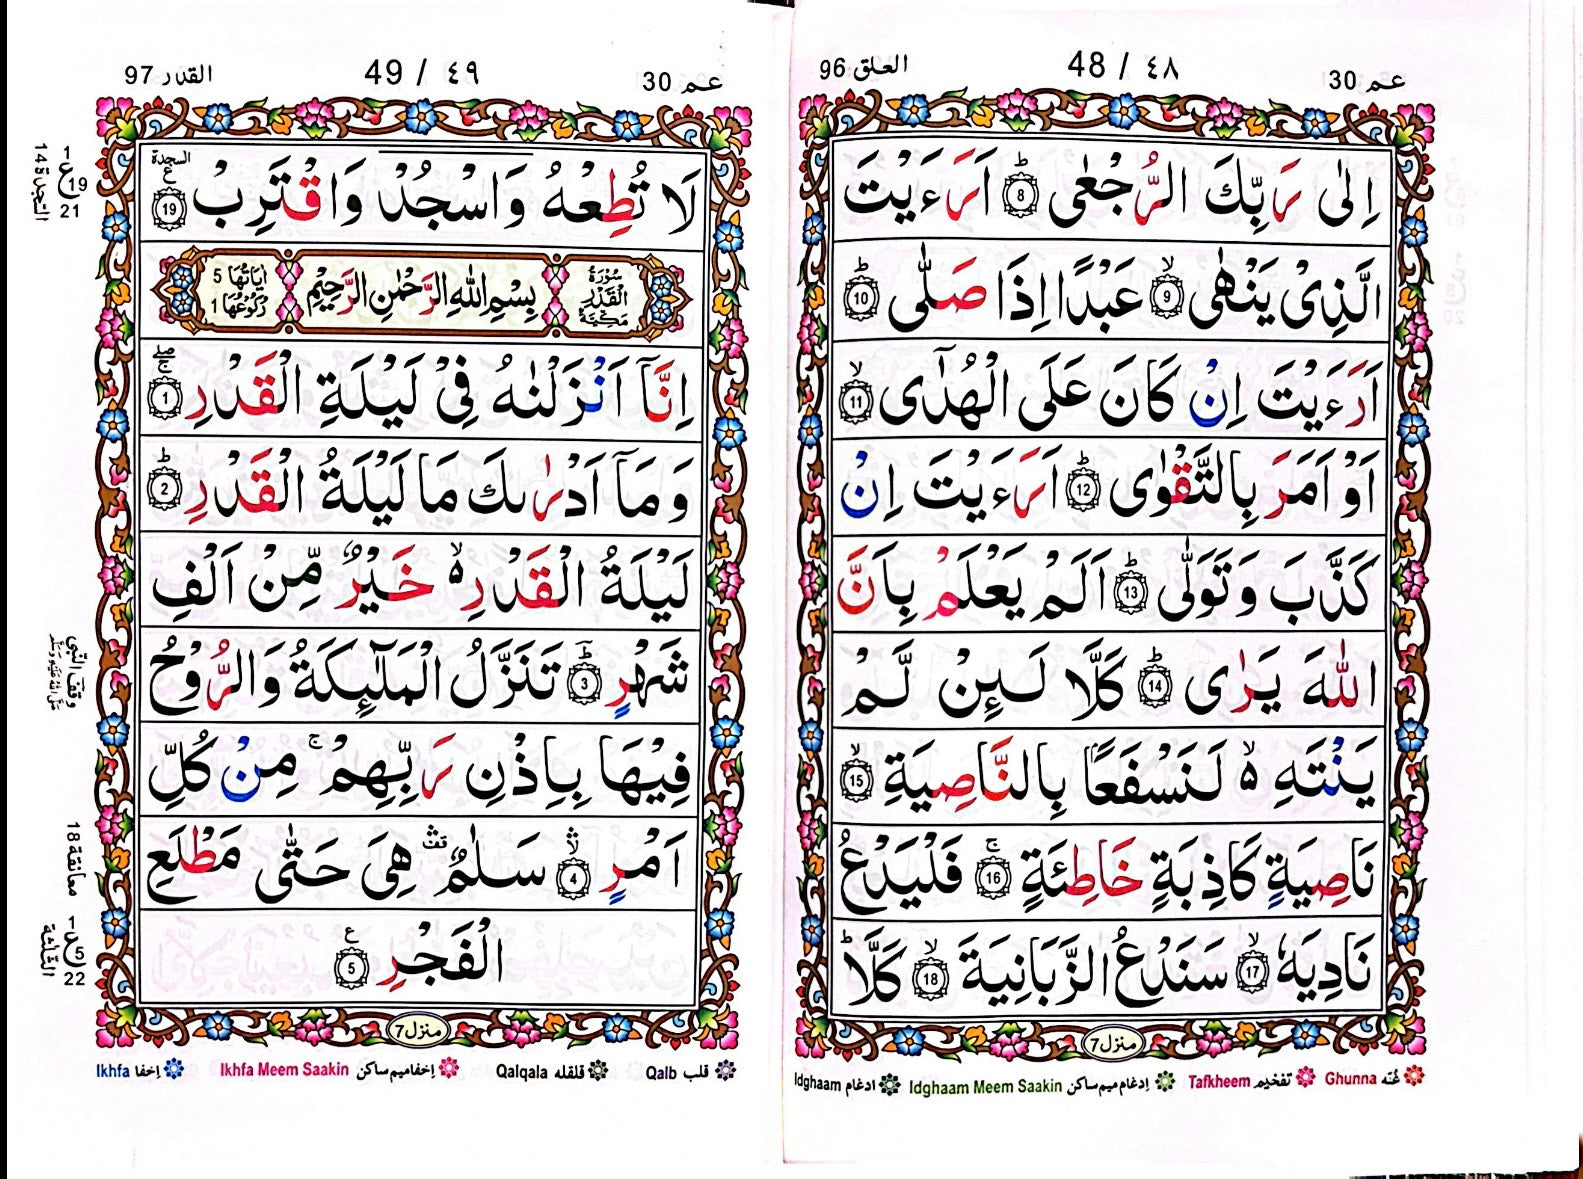 عم 30
48 / ٤٨
العلق 96
اِلٰى رَبِّكَ الرُّجْعٰى ؕ 8 اَرَءَيْتَ
الَّذِىْ يَنْهٰى ۙ 9 عَبْدًا اِذَا صَلّٰى ؕ 10
اَرَءَيْتَ اِنْ كَانَ عَلَى الْهُدٰٓى ۙ 11
اَوْ اَمَرَ بِالتَّقْوٰى ؕ 12 اَرَءَيْتَ اِنْ
كَذَّبَ وَتَوَلّٰى ؕ 13 اَلَمْ يَعْلَمْ بِاَنَّ
اللّٰهَ يَرٰى ؕ 14 كَلَّا لَٮِٕنْ لَّمْ
يَنْتَهِ ۙ۬ لَنَسْفَعًۢا بِالنَّاصِيَةِ ۙ 15
نَاصِيَةٍ كَاذِبَةٍ خَاطِئَةٍ ۚ 16 فَلْيَدْعُ
نَادِيَهٗ ۙ 17 سَنَدْعُ الزَّبَانِيَةَ ۙ 18 كَلَّا ؕ
منزل 7
Ghunna غُنّه Tafkheem تفخیم Idghaam Meem Saakin اِدغام میم ساکن Idghaam ادغام
عم 30
49 / ٤٩
القدر 97
السجدة
لَا تُطِعْهُ وَاسْجُدْ وَاقْتَرِبْ 19
ع 19
1
21
السجدة ١٤
سُوْرَةُ الْقَدْرِ مَكِّيَّةٌ
بِسْمِ اللّٰهِ الرَّحْمٰنِ الرَّحِيْمِ
اٰيَاتُهَا 5
رُكُوْعُهَا 1
اِنَّآ اَنْزَلْنٰهُ فِىْ لَيْلَةِ الْقَدْرِ ۖۚ 1
وَمَآ اَدْرٰٮكَ مَا لَيْلَةُ الْقَدْرِ ؕ 2
لَيْلَةُ الْقَدْرِ ۙ۬ خَيْرٌ مِّنْ اَلْفِ
شَهْرٍ ؕ 3 تَنَزَّلُ الْمَلٰٓٮِٕكَةُ وَالرُّوْحُ
وقف النبی صلی اللہ علیہ وسلم
فِيْهَا بِاِذْنِ رَبِّهِمْ ۚ مِنْ كُلِّ
اَمْرٍ ۛۙ 4 سَلٰمٌ ۛ قف هِىَ حَتّٰى مَطْلَعِ
معانقة 18
الْفَجْرِ 5 ع
ع 5
1
22
الثلثة
منزل 7
Qalb قلب Qalqala قلقله Ikhfa Meem Saakin اِخفا میم ساکن Ikhfa اِخفا